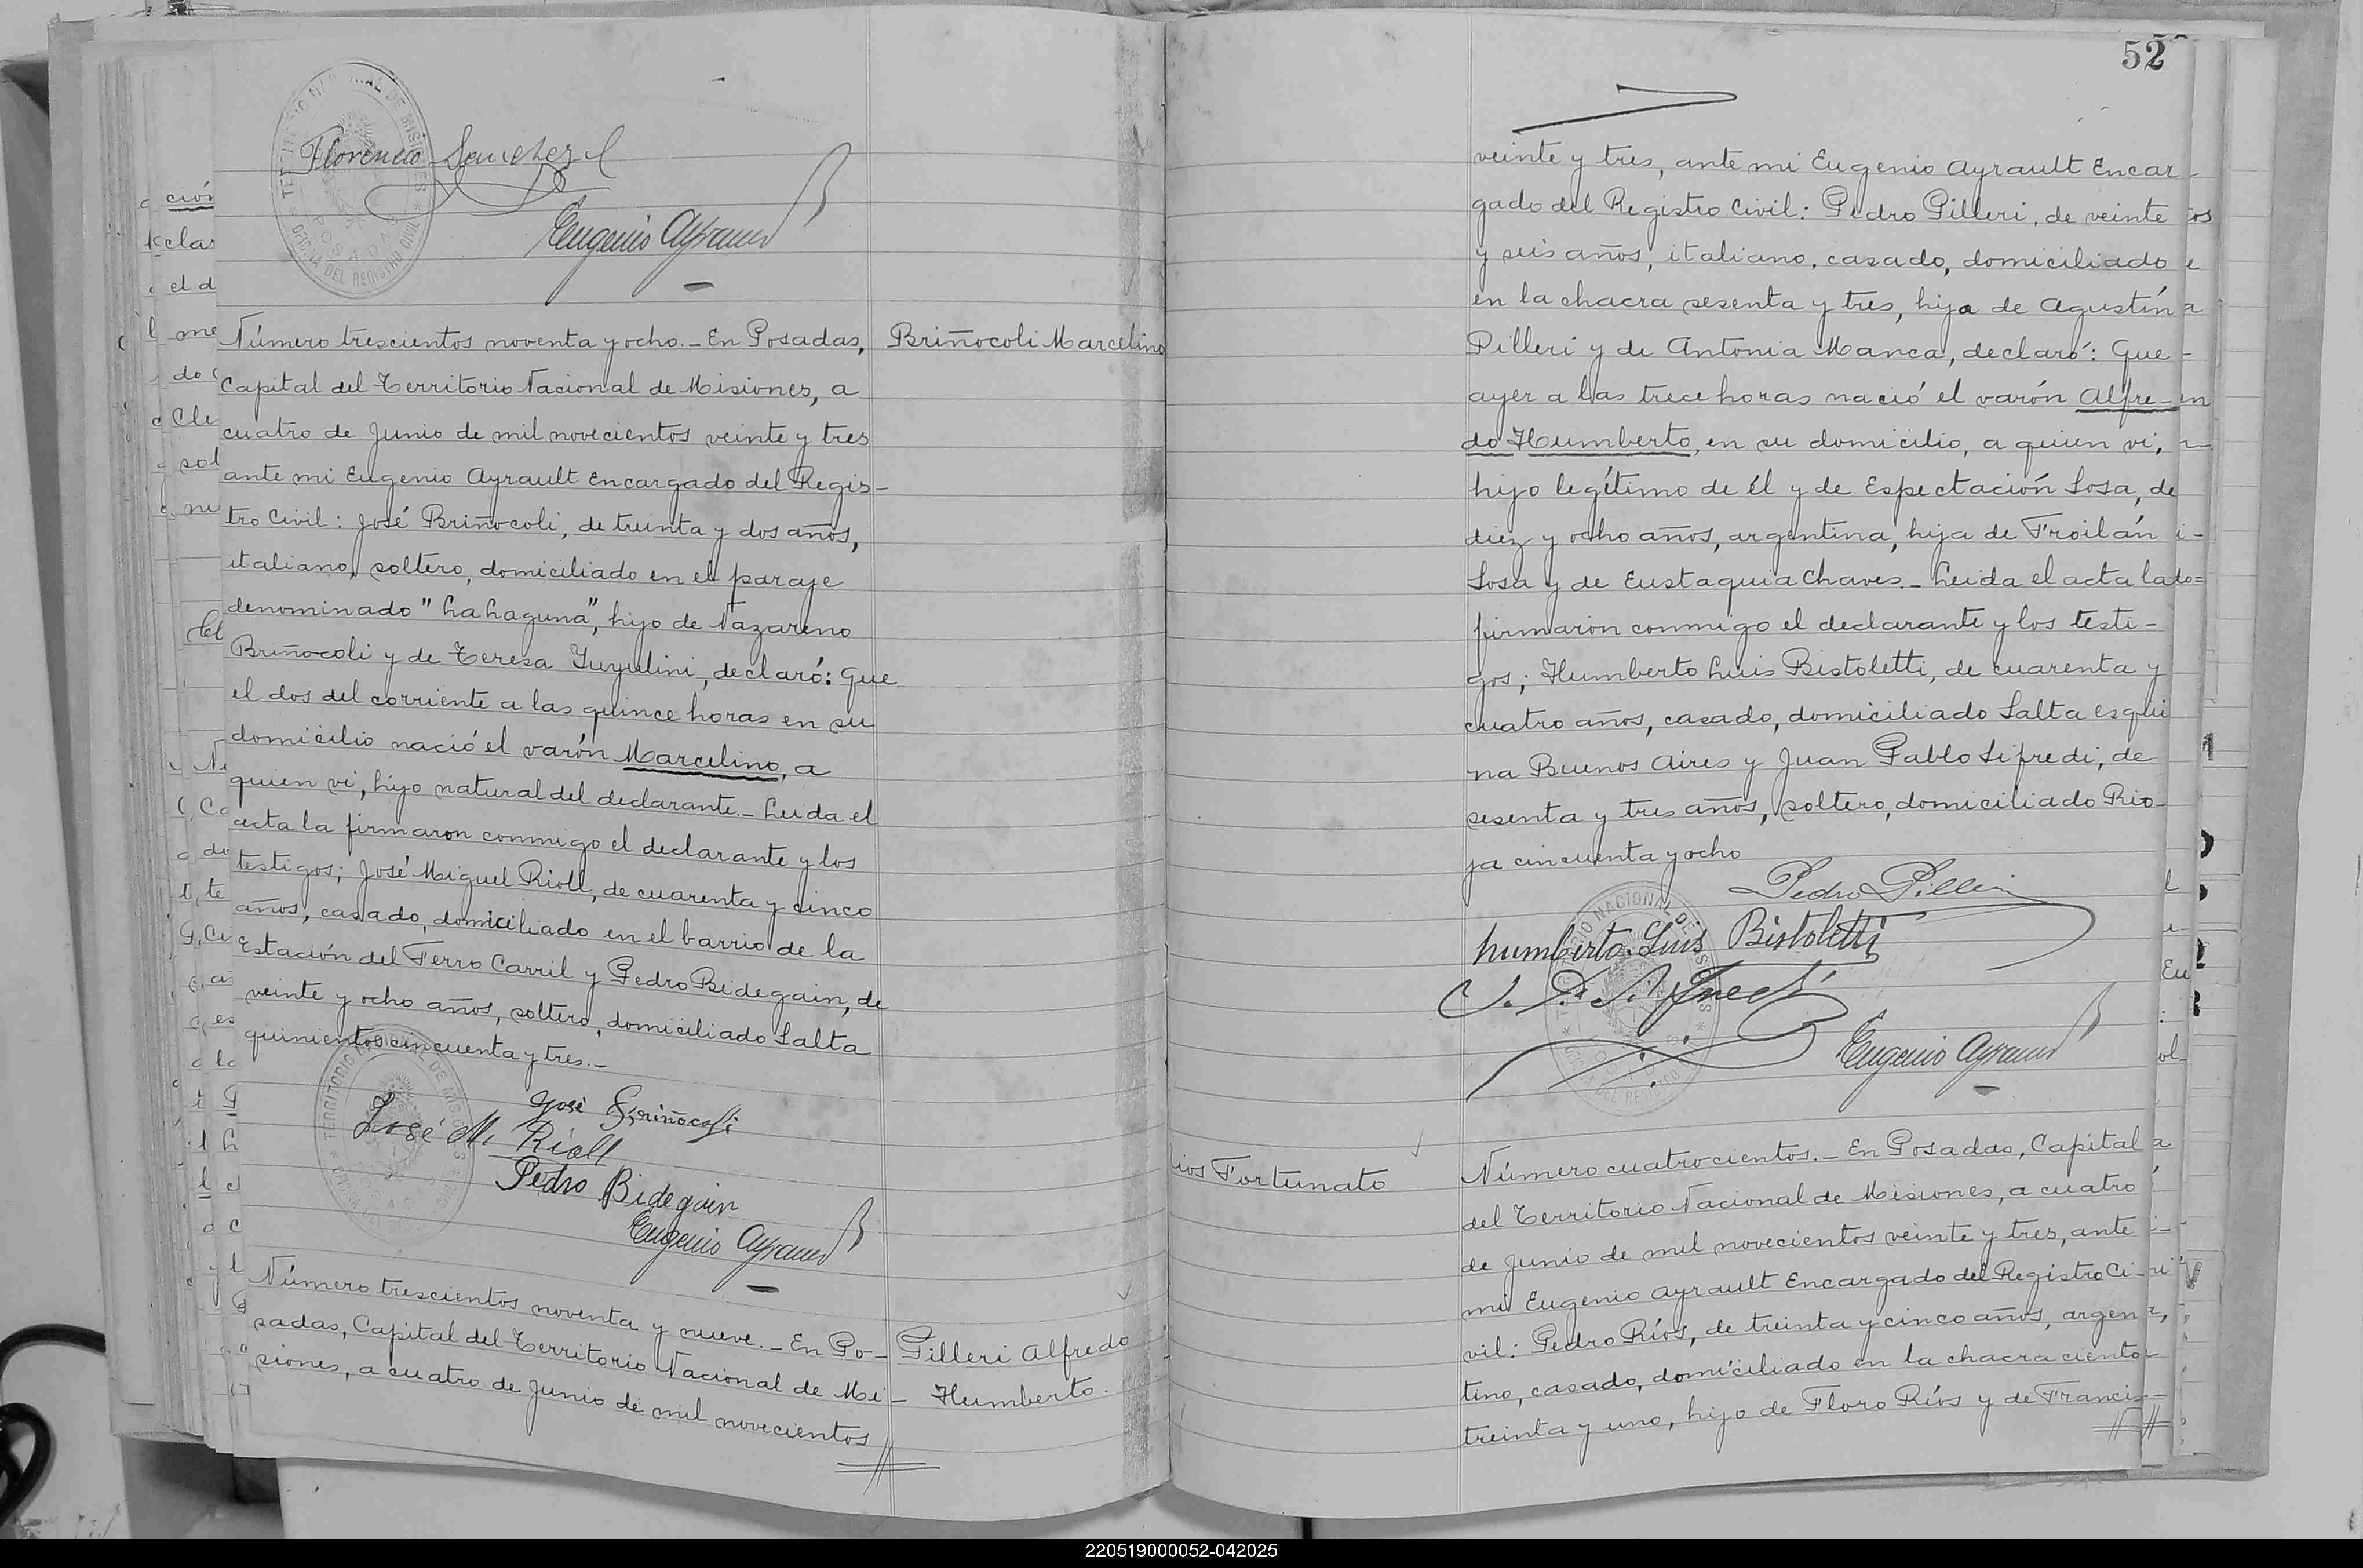 Florencio Sanchez
Eugenio Ayrault
Número trescientos noventa y ocho.- En Posadas,
Briñocoli Marcelino
Capital del Territorio Nacional de Misiones, a
cuatro de Junio de mil novecientos veinte y tres
ante mi Eugenio Ayrault Encargado del Regis-
tro Civil: José Briñocoli, de treinta y dos años,
italiano, soltero, domiciliado en el paraje
denominado "La Laguna", hijo de Nazareno
Briñocoli y de Teresa Yuyulini, declaró: Que
el dos del corriente a las quince horas en su
domicilio nació el varón Marcelino, a
quien vi, hijo natural del declarante.- Leida el
acta la firmaron conmigo el declarante y los
testigos; José Miguel Rioll, de cuarenta y cinco
años, casado, domiciliado en el barrio de la
Estación del Ferro Carril y Pedro Bidegain, de
veinte y ocho años, soltero, domiciliado Salta
quinientos cincuenta y tres.-
José Briñocoli
José M. Rioll
Pedro Bidegain
Eugenio Ayrault
Número trescientos noventa y nueve.- En Po-
sadas, Capital del Territorio Nacional de Mi-
siones, a cuatro de Junio de mil novecientos
Pilleri Alfredo
Humberto.
52
veinte y tres, ante mi Eugenio Ayrault Encar-
gado del Registro Civil: Pedro Pilleri, de veinte
y seis años, italiano, casado, domiciliado
en la chacra sesenta y tres, hijo de Agustín
Pilleri y de Antonia Manca, declaró: Que
ayer a las trece horas nació el varón Alfre-
do Humberto, en su domicilio, a quien vi,
hijo legítimo de él y de Espectación Sosa, de
diez y ocho años, argentina, hija de Froilán
Sosa y de Eustaquia Chaves.- Leida el acta la
firmaron conmigo el declarante y los testi-
gos; Humberto Luis Bistoletti, de cuarenta y
cuatro años, casado, domiciliado Salta esqui
na Buenos Aires y Juan Pablo Sifredi, de
sesenta y tres años, soltero, domiciliado Rio-
ja cincuenta y ocho
Pedro Pilleri
Humberto Luis Bistoletti
Eugenio Ayrault
ios Fortunato
Número cuatrocientos.- En Posadas, Capital
del Territorio Nacional de Misiones, a cuatro
de Junio de mil novecientos veinte y tres, ante
mi Eugenio Ayrault Encargado del Registro Ci-
vil: Pedro Ríos, de treinta y cinco años, argen
tino, casado, domiciliado en la chacra ciento
treinta y uno, hijo de Floro Ríos y de Francis-
220519000052-042025